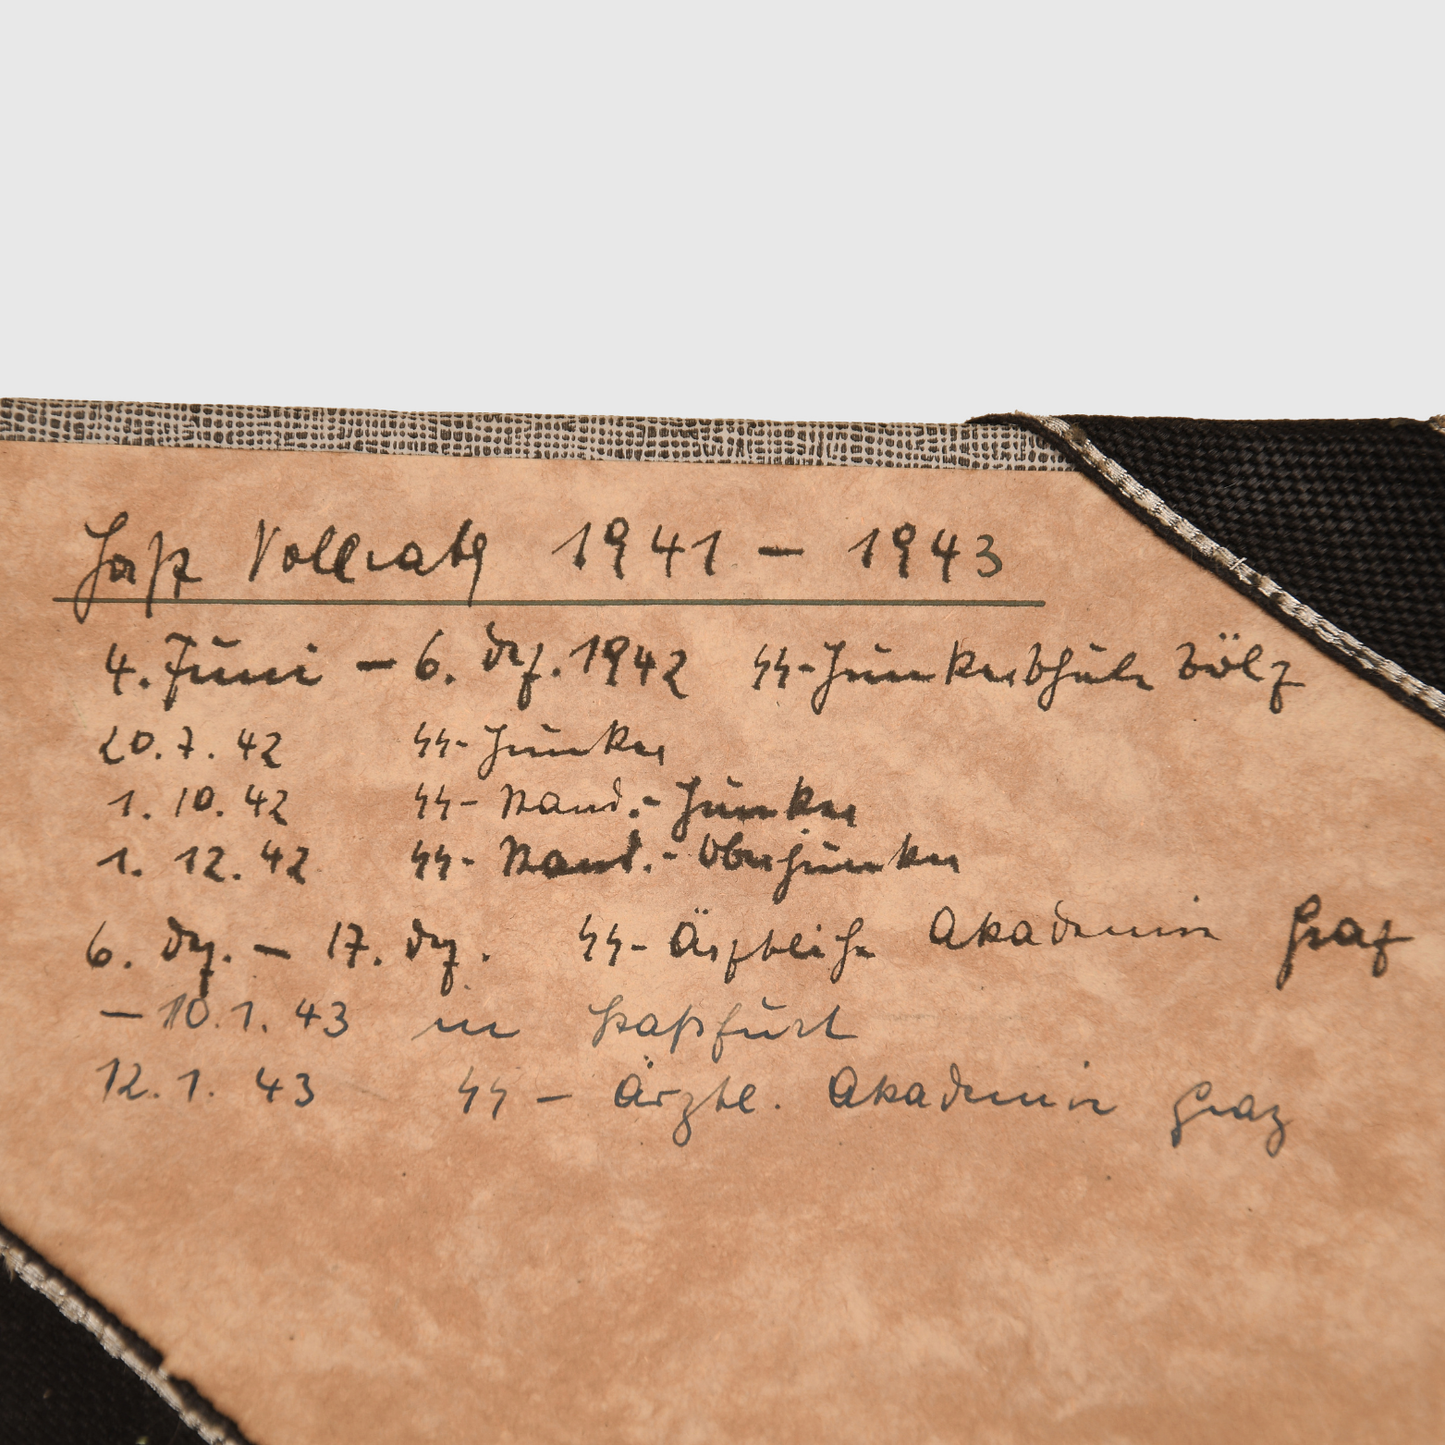 Haß Vollrath 1941 – 1943
4. Juni – 6. Dez. 1942 SS-Junkerschule Tölz
20.7.42 SS-Junker
1.10.42 SS-Stand.-Junker
1.12.42 SS-Stand.-Oberjunker
6. Dez. – 17. Dez. SS-Ärztliche Akademie Graz
– 10.1.43 in Haßfurt
12.1.43 SS – Ärztl. Akademie Graz